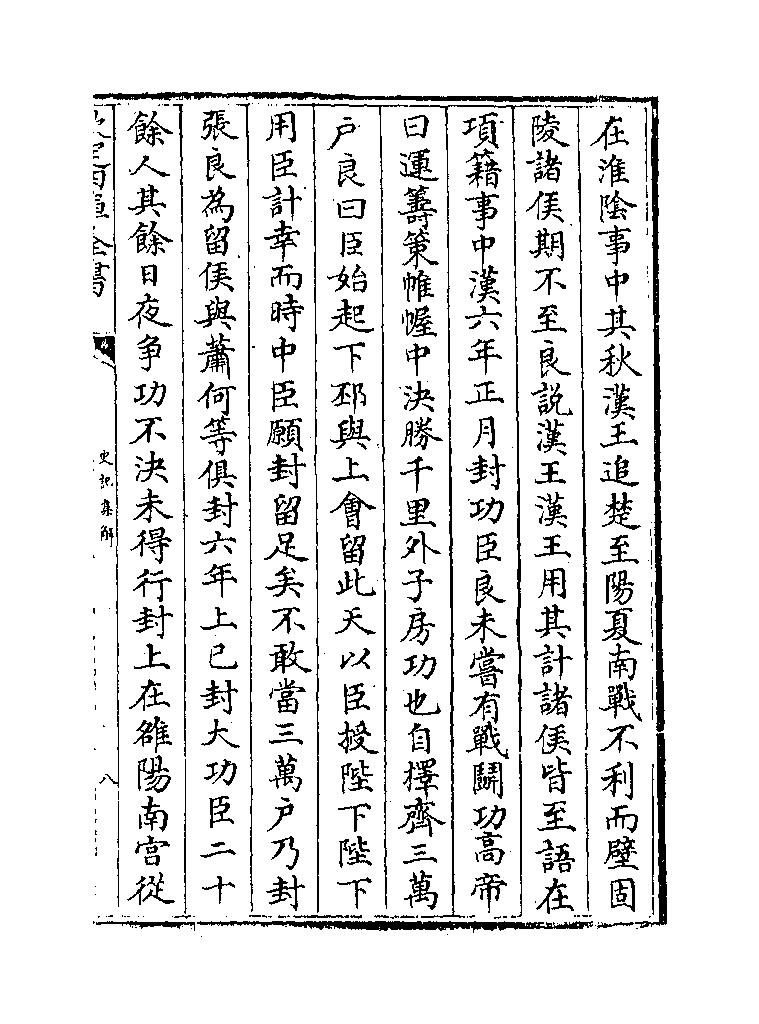 在淮陰事中其秋漢王追楚至陽夏南戰不利而壁固
陵諸侯期不至良說漢王漢王用其計諸侯皆至語在
項籍事中漢六年正月封功臣良未嘗有戰鬭功髙帝
曰運籌策帷幄中決勝千里外子房功也自擇齊三萬
户良曰臣始起下邳與上㑹留此天以臣授陛下陛下
用臣計幸而時中臣願封留足矣不敢當三萬户乃封
張良為留侯與蕭何等俱封六年上已封大功臣二十
餘人其餘日夜争功不決未得行封上在雒陽南宫從
欽定四庫全書
史記集解
八